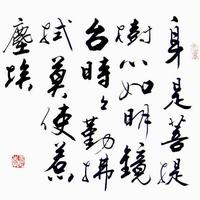 身是菩提
樹心如明鏡
台時々勤拂
拭莫使惹
塵埃